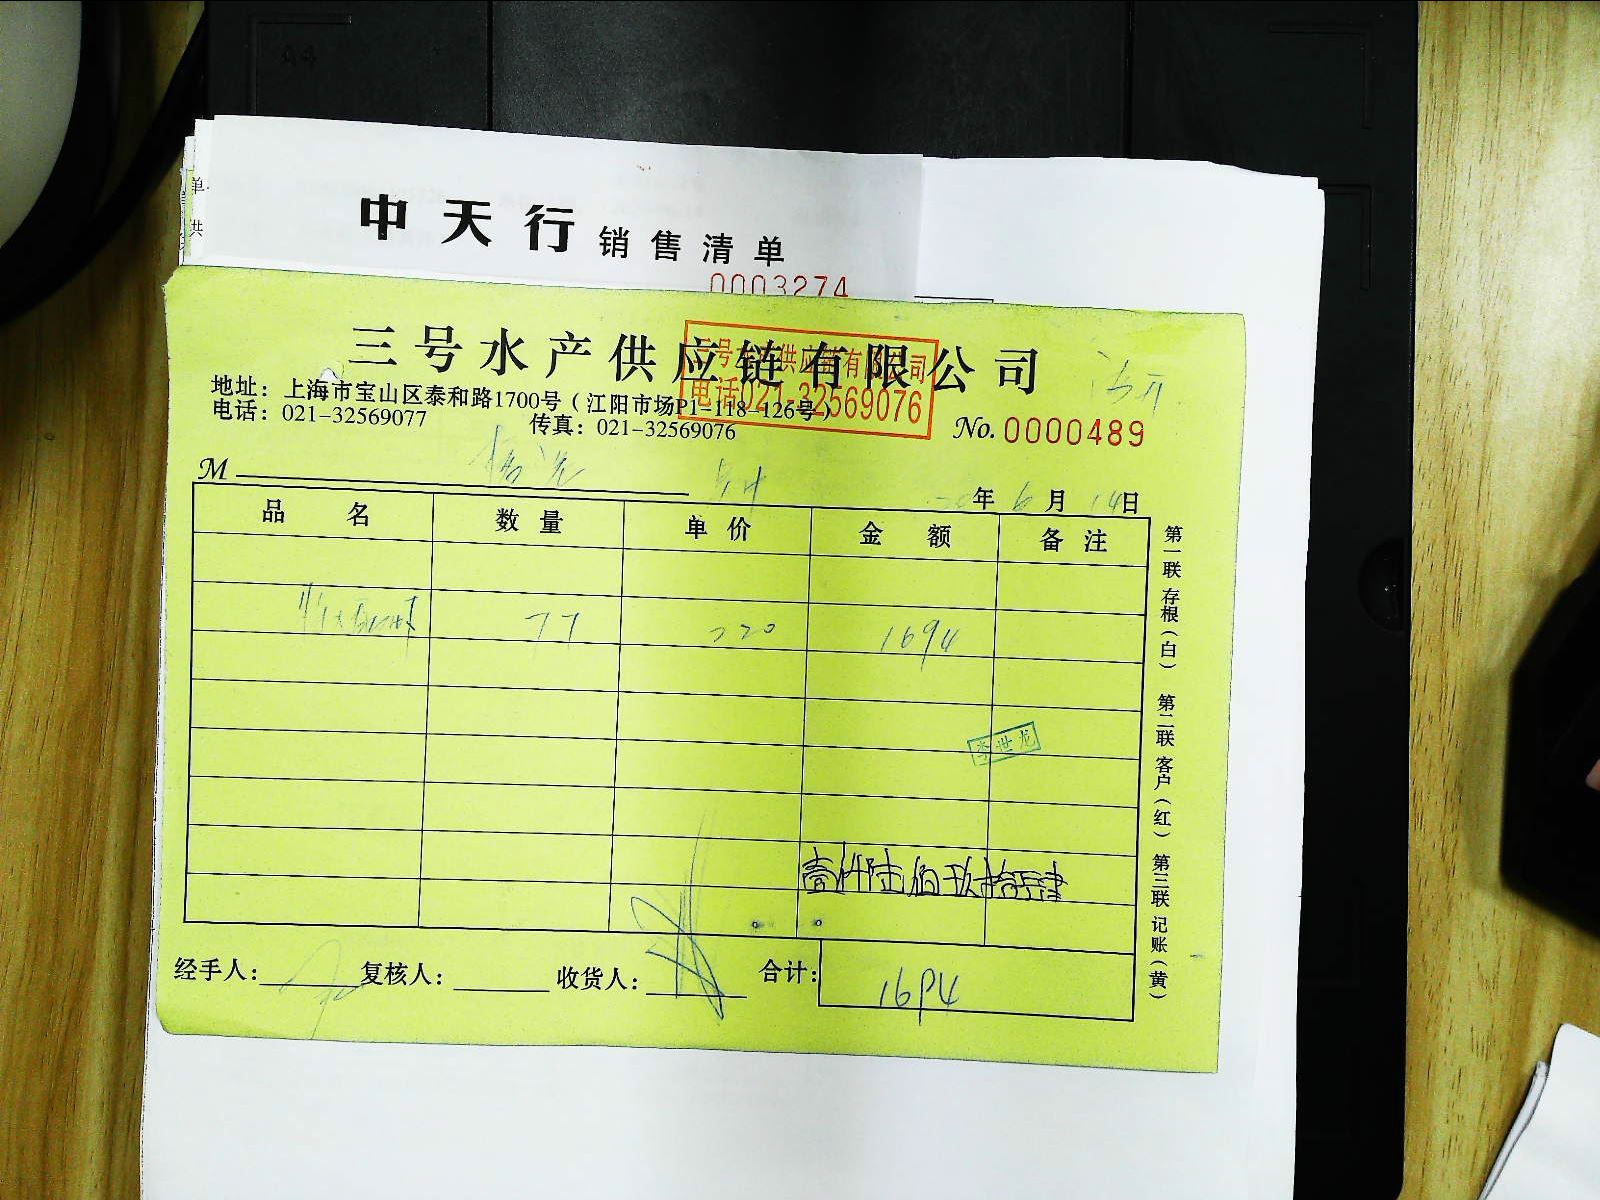 A4
单
供
中天行 销售清单
0003274
三号水产供应链有限公司
三号水产供应链有限公司
电话021-32569076
地址：上海市宝山区泰和路1700号（江阳市场P1-118-126号）
电话：021-32569077 传真：021-32569076
No. 0000489
M
年 6 月 14 日
品名 数量 单价 金额 备注
77 220 1694
李世龙
壹仟陆佰玖拾肆
经手人： 复核人： 收货人： 合计： 1694
第一联 存根（白） 第二联 客户（红） 第三联 记账（黄）